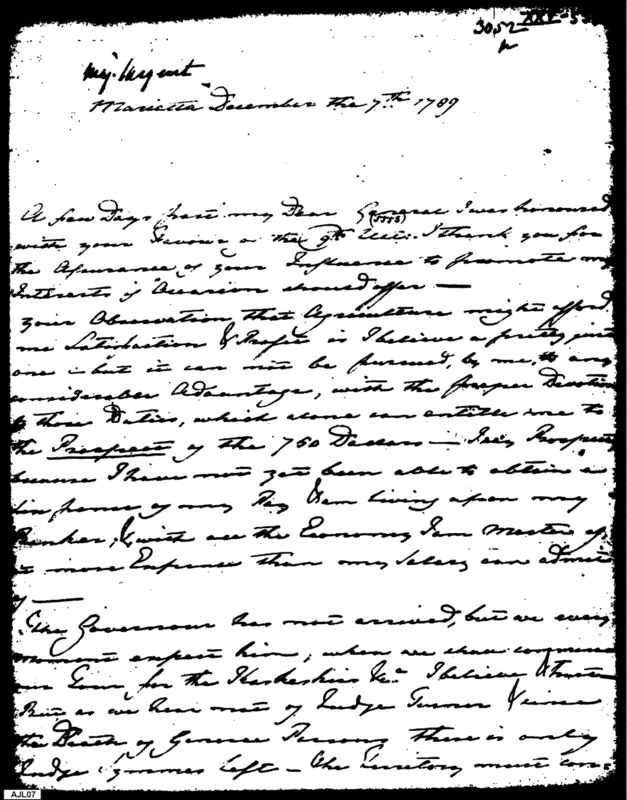 3052 XXV-5
Maj. Sargent
Marietta December the 7th 1789
A few Days past my Dear General I was honoured
with your Favour of the 9th Ult: I thank you for
the Assurance of your Influence to promote my
Interests if Occasion should offer —
your Observation that Agriculture might afford
me Satisfaction & Profit is I believe a pretty just
one — but it can not be pursued, by me, to any
considerable Advantage, with the proper Devotion
to those Duties, which alone can entitle me to
the Prospect of the 750 Dollars — I say Prospect
because I have not yet been able to obtain a
six pence of my Pay & am living upon my
Banker; & with all the Economy I am Master of,
at more Expense than my Salary can admit
of —
The Governour has not arrived, but we every
moment expect him; when we shall commence
our Tour for the Kaskaskias &c. I believe & trust
But as we hear not of Judge Turner & since
the Death of General Parsons there is only
Judge Symmes left — the Territory must con-
AJL07